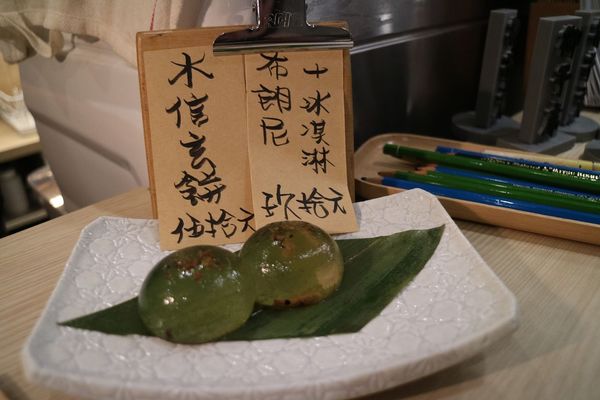 水信玄餅
伍拾元
布朗尼
+冰淇淋
玖拾元